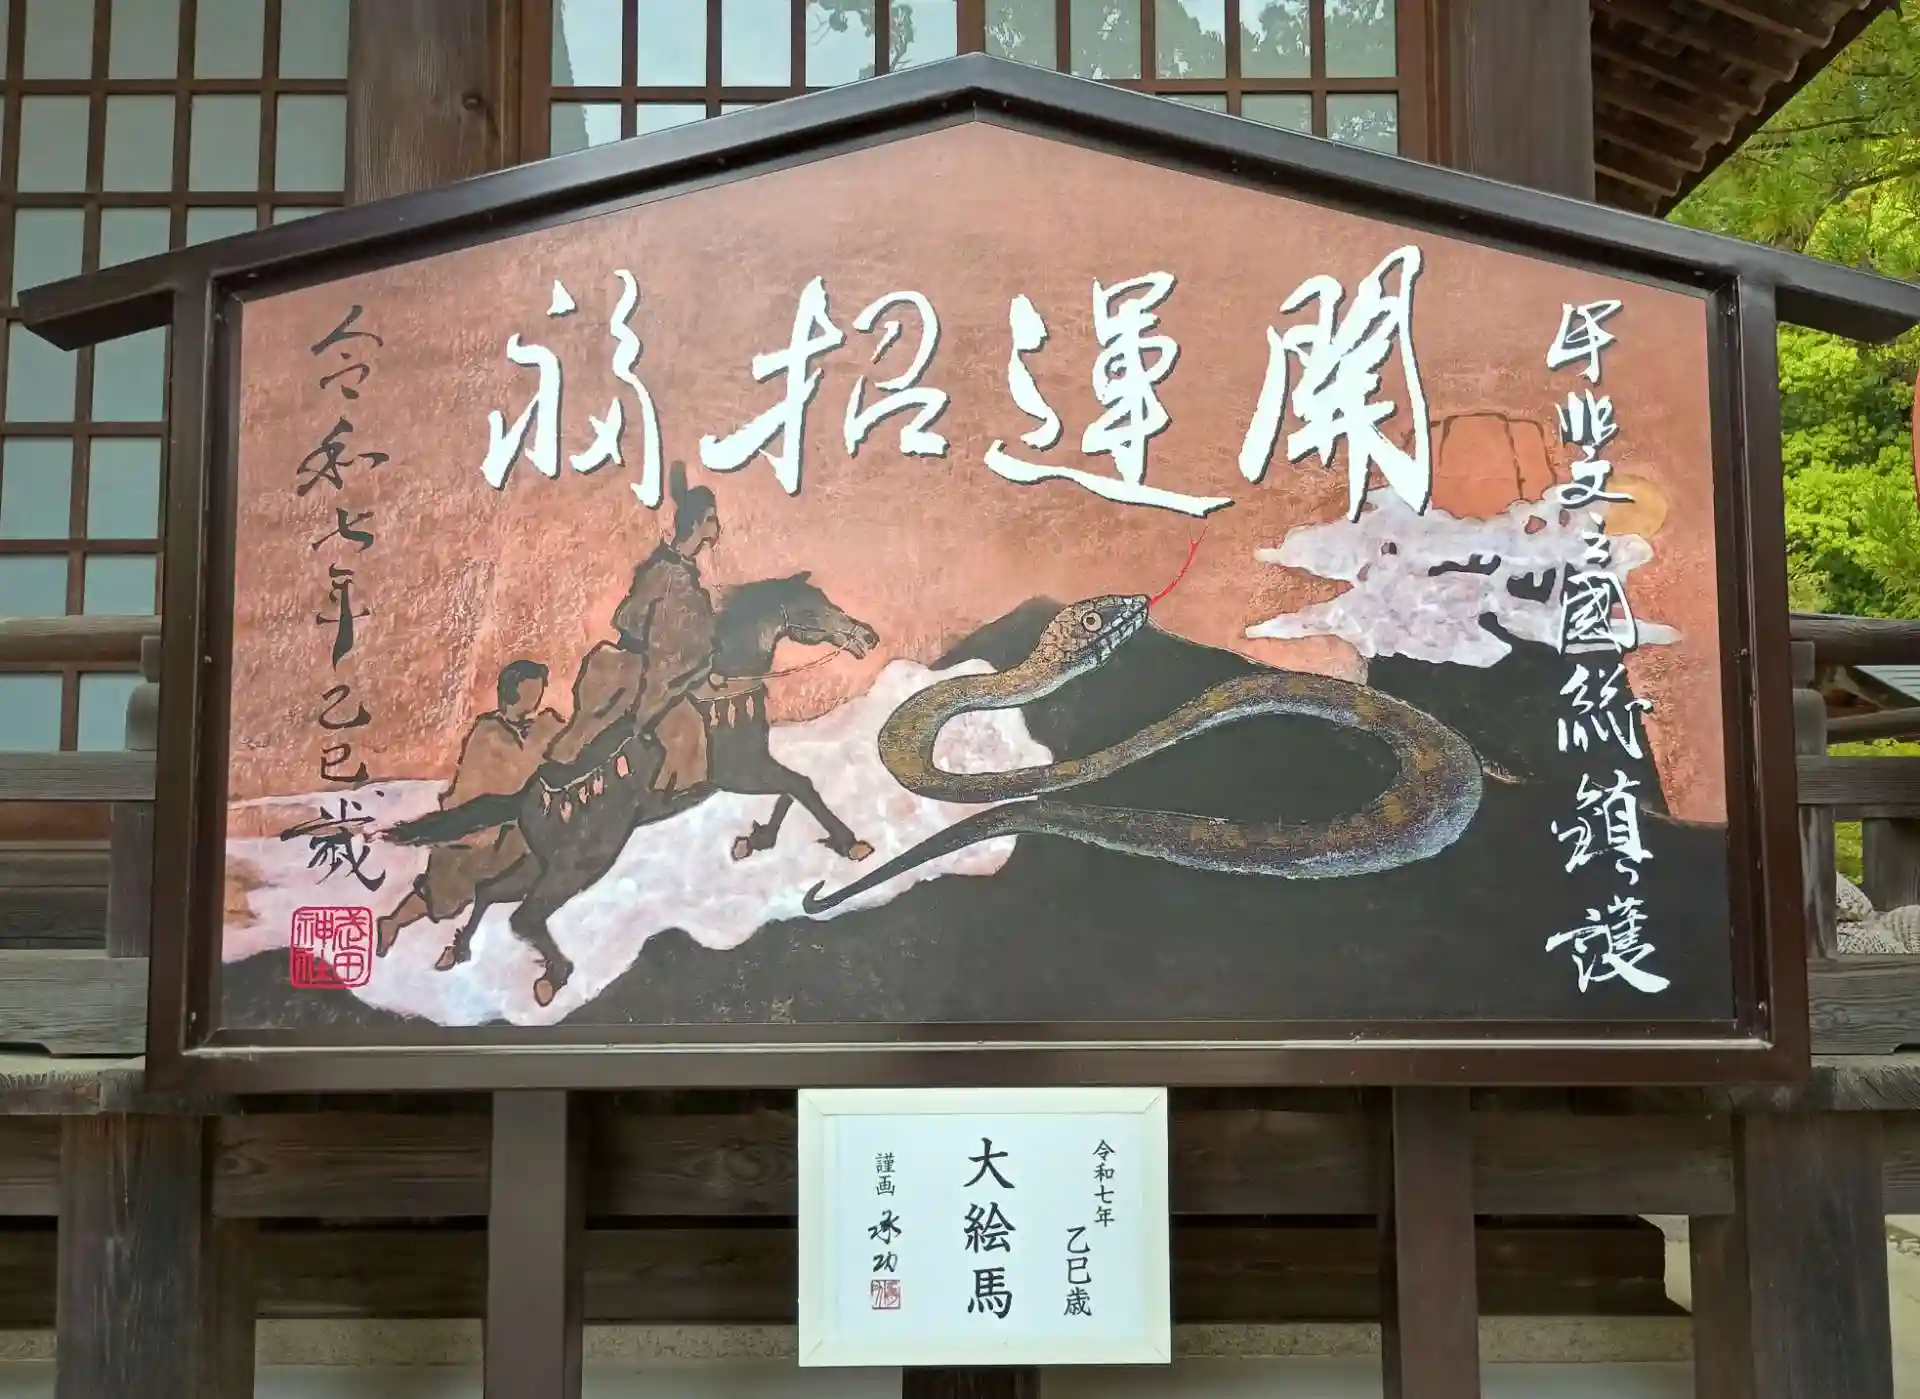 甲斐之國総鎮護
開運招福
令和七年乙巳歳
武田神社
令和七年
乙巳歳
大絵馬
謹画 承功